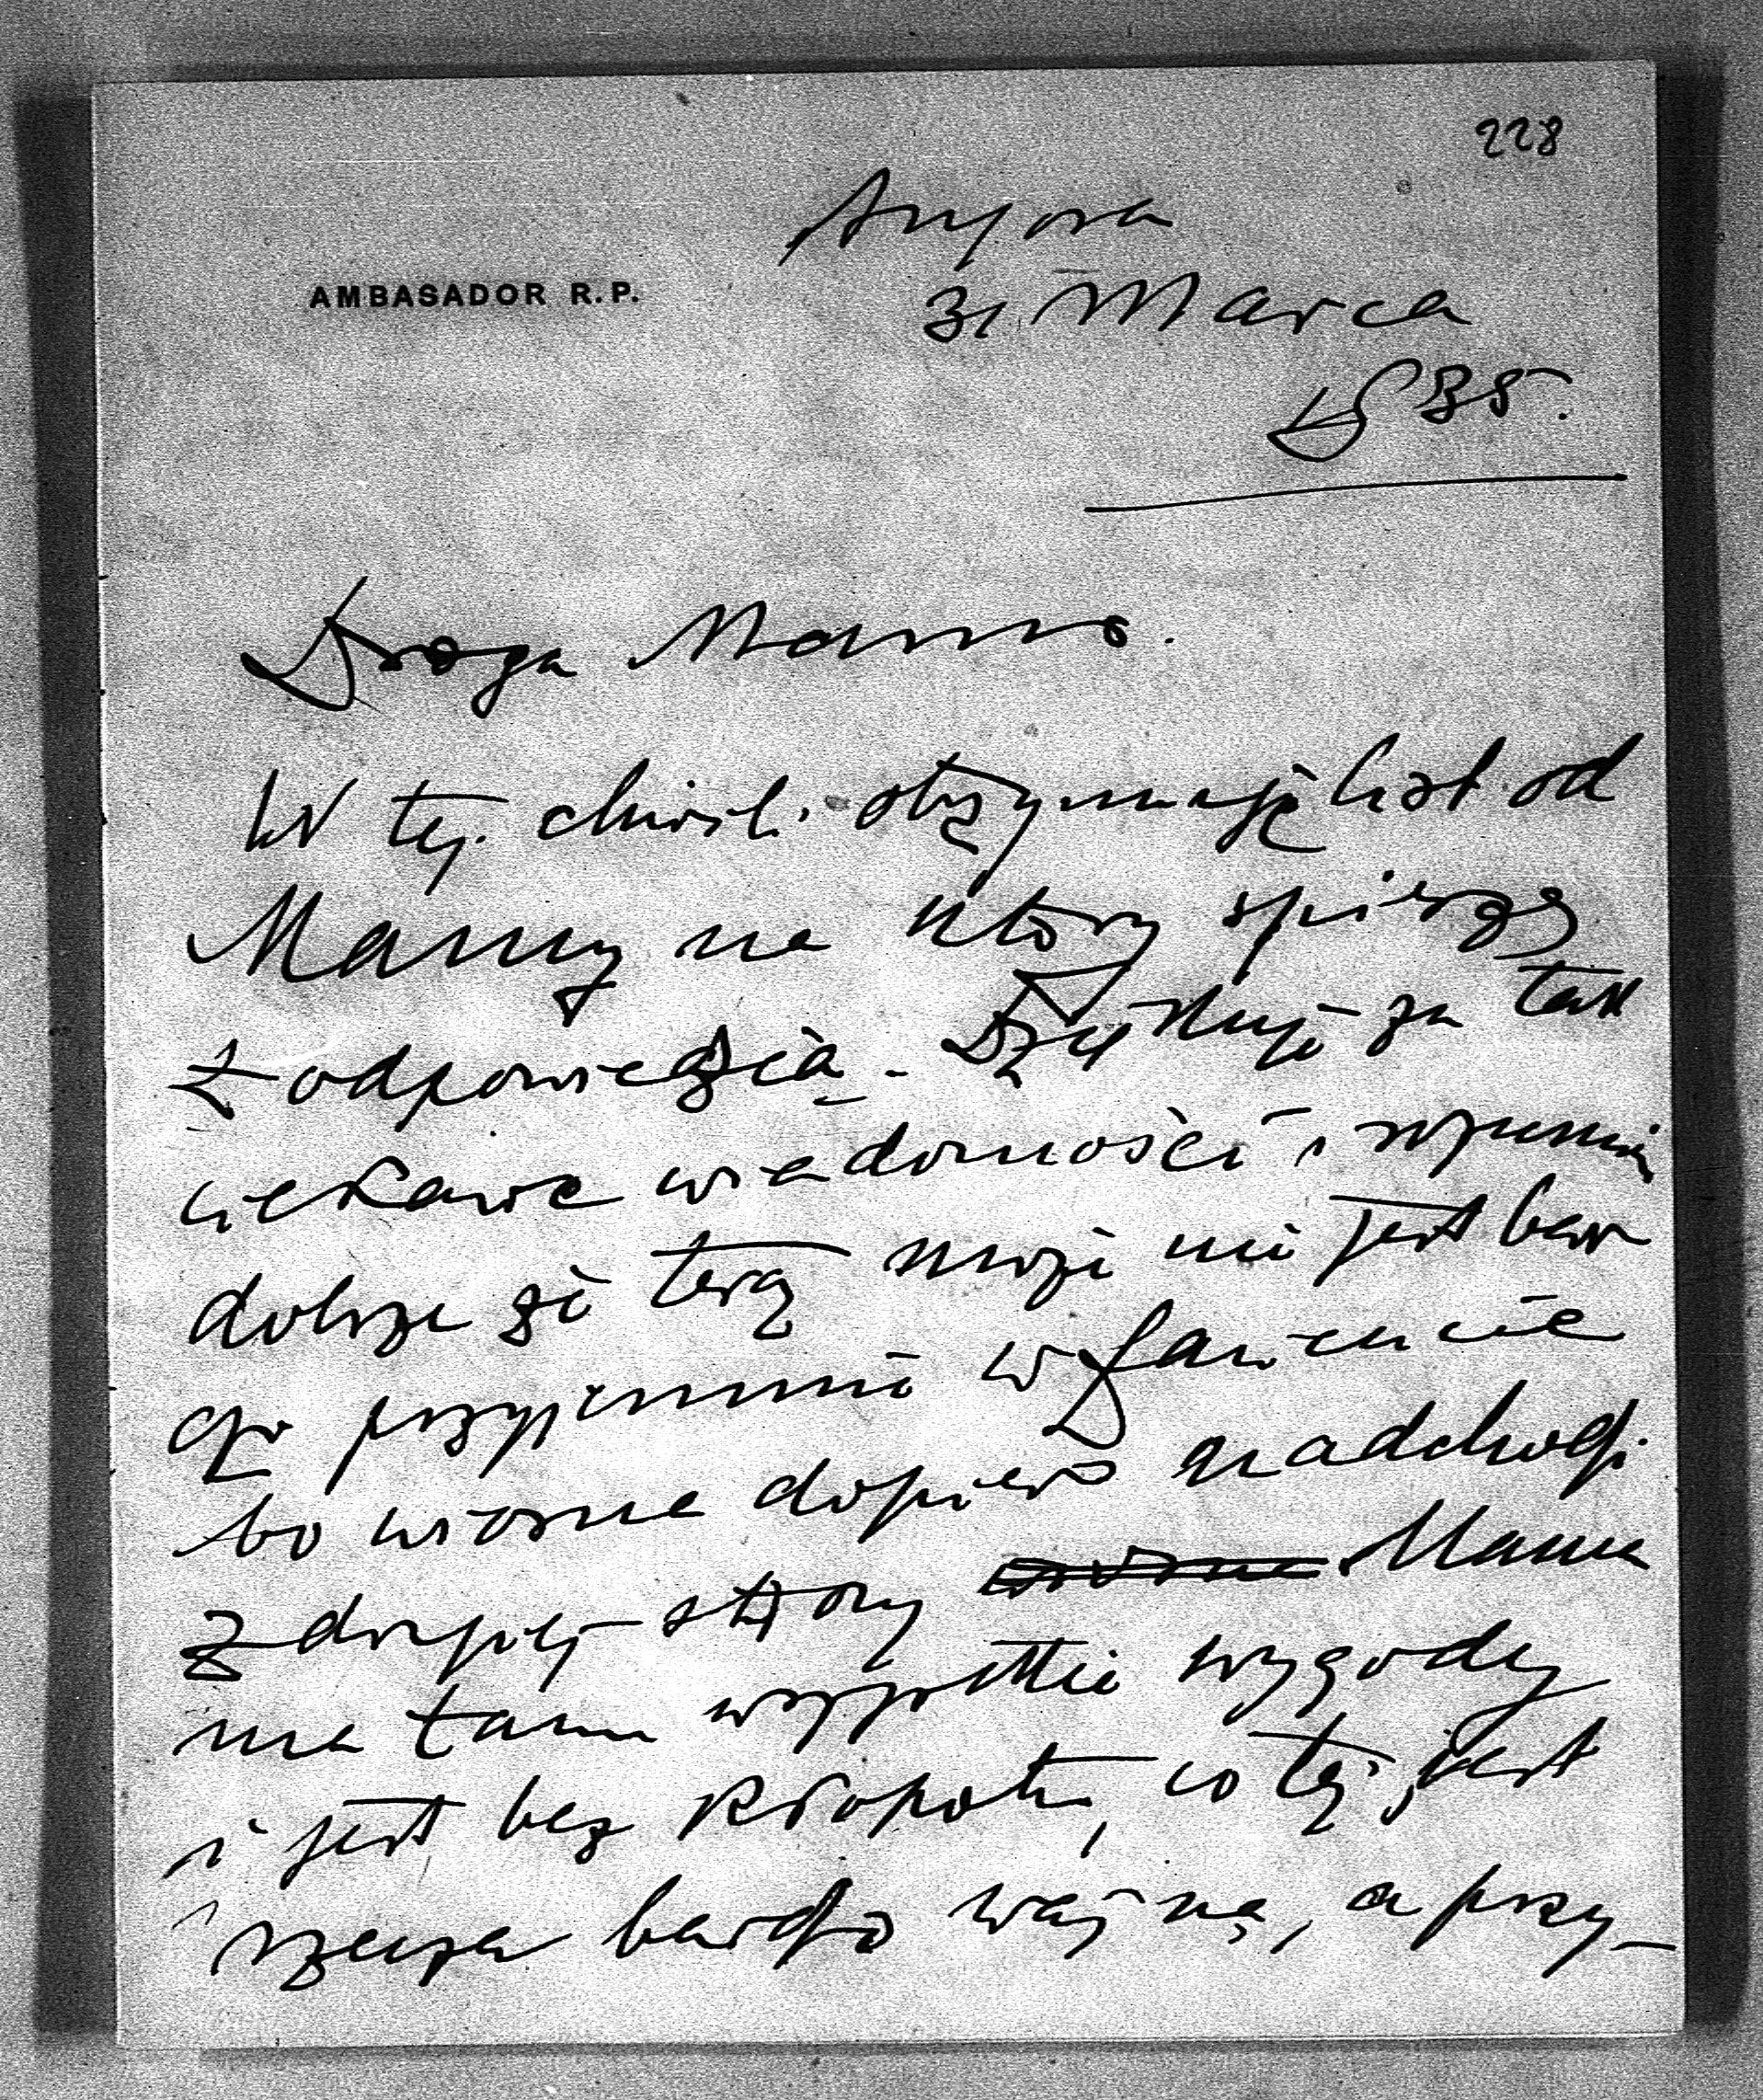 228
Angora
AMBASADOR R.P.
31 Marca
1935.
Droga Mamo.
W tej chwili otrzymuję list od
Mamy na który spieszę
z odpowiedzią. Dziękuję za tak
ciekawe wiadomości i rozumiem
dobrze że teraz może nie jest bar
dzo przyjemnie w Łańcucie
bo wiosna dopiero nadchodzi.
Z drugiej strony Mama
ma tam wszystkie wygody
i jest bez kłopotu, co też jest
rzeczą bardzo ważną, a przy-